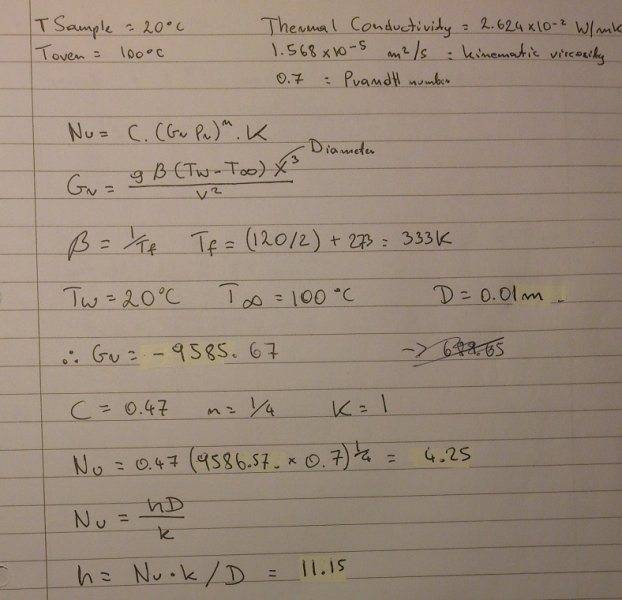 T Sample = 20°C
Thermal Conductivity = 2.624x10⁻² W/mk
Toven = 100°C
1.568x10⁻⁵ m²/s = kinematic viscosity
0.7 = Prandtl number
Nu = C.(Gr Pr)ᵐ.K
Diameter
Gr = g β (Tw - T∞) X³ / v²
β = 1/Tf Tf = (120/2) + 273 = 333K
Tw = 20°C T∞ = 100°C D = 0.01m.
∴ Gr = -9585.67 ->
C = 0.47 m = 1/4 K = 1
Nu = 0.47 (9586.57. x 0.7)^1/4 = 4.25
Nu = hD / k
h = Nu·k/D = 11.15